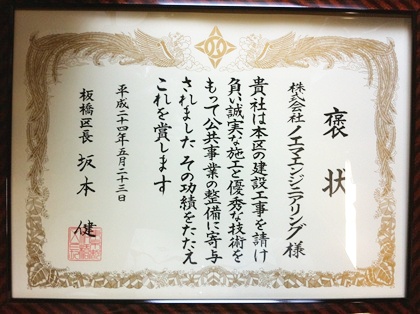 褒状
株式会社 ノエマエンジニアリング 様
貴社は本区の建設工事を請け
負い誠実な施工と優秀な技術を
もって公共事業の整備に寄与
されました その功績をたたえ
これを賞します
平成二十四年五月二十三日
板橋区長 坂本 健